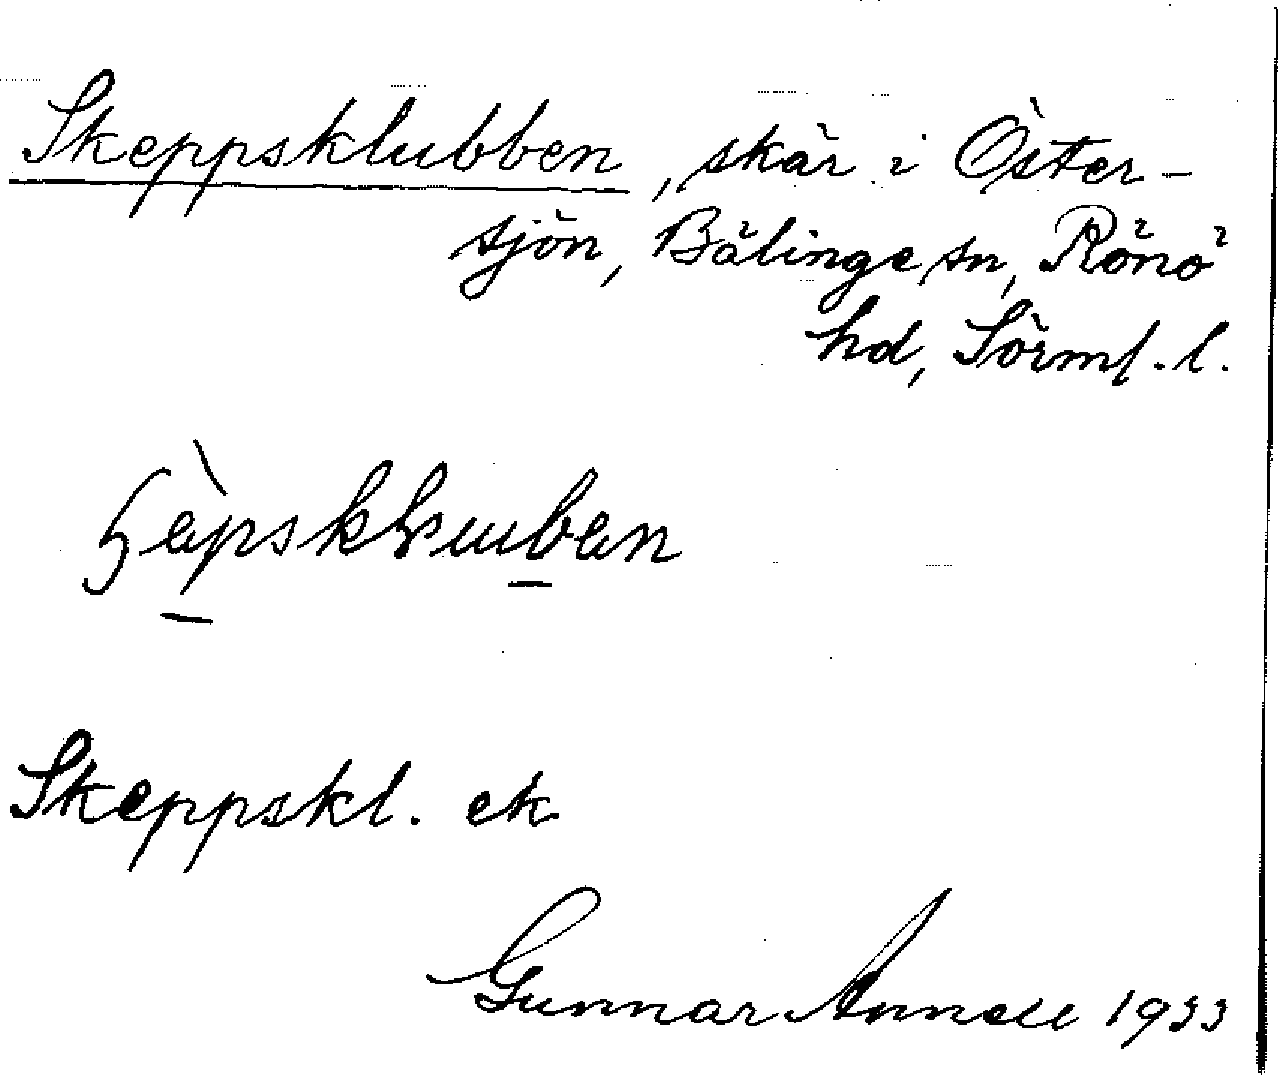 Skeppsklubben, skär i Öster-
sjön, Bälinge sn, Rönö
hd, Sörml. l.
Skeppskl. ek
Gunnar Annell 1933